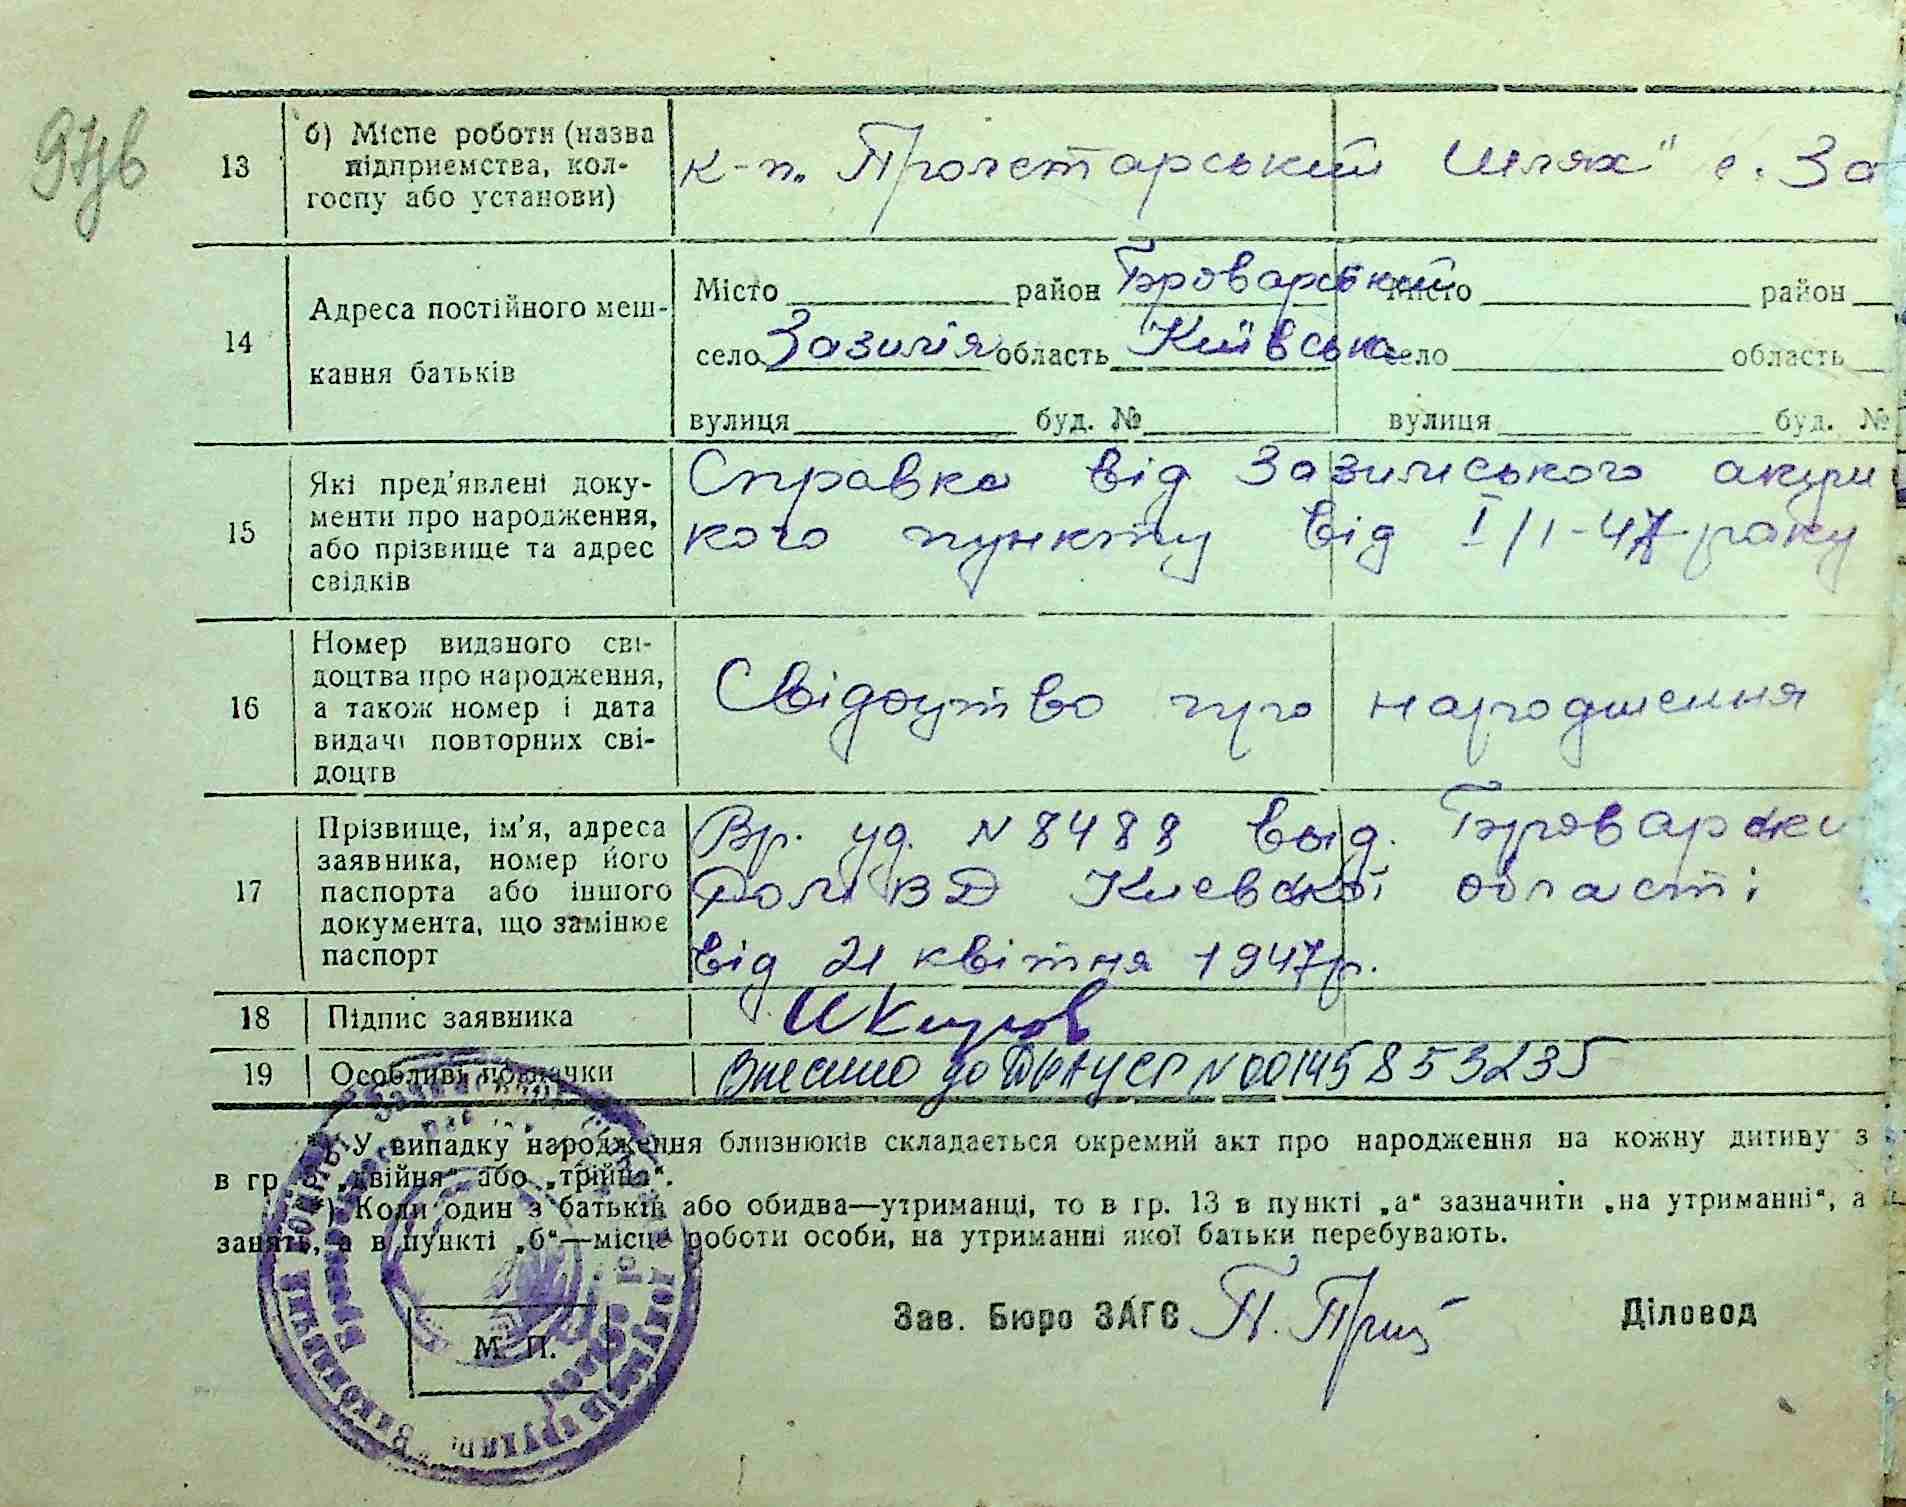 13
б) Місце роботи (назва
підприємства, кол-
госпу або установи)
к-п. Пролетарський шлях" с. За
14
Адреса постійного меш-
кання батьків
Місто район Броварський Місто район
село Зазимʼя область Київська село область
вулиця буд. № вулиця буд. №
15
Які пред'явлені доку-
менти про народження,
або прізвище та адрес
свідків
Справка від Зазимського акуш
кого пункту від I/1-47 року
16
Номер виданого сві-
доцтва про народження,
а також номер і дата
видачі повторних сві-
доцтв
Свідоцтво про народження
17
Прізвище, ім'я, адреса
заявника, номер його
паспорта або іншого
документа, що замінює
паспорт
Вр. уд. N 8488 выд. Броварски
Києвскої області
від 21 квітня 1947р.
18 Підпис заявника
19 Особливі позначки Внесено до N00145853235
У випадку народження близнюків складається окремий акт про народження на кожну дитину з
в гр. 3 „двійня" або „трійня".
) Коли один з батьків або обидва—утриманці, то в гр. 13 в пункті „а" зазначити „на утриманні", а
занять, а в пункті „б"—місце роботи особи, на утриманні якої батьки перебувають.
Зав. Бюро ЗАГС Діловод
М. П.